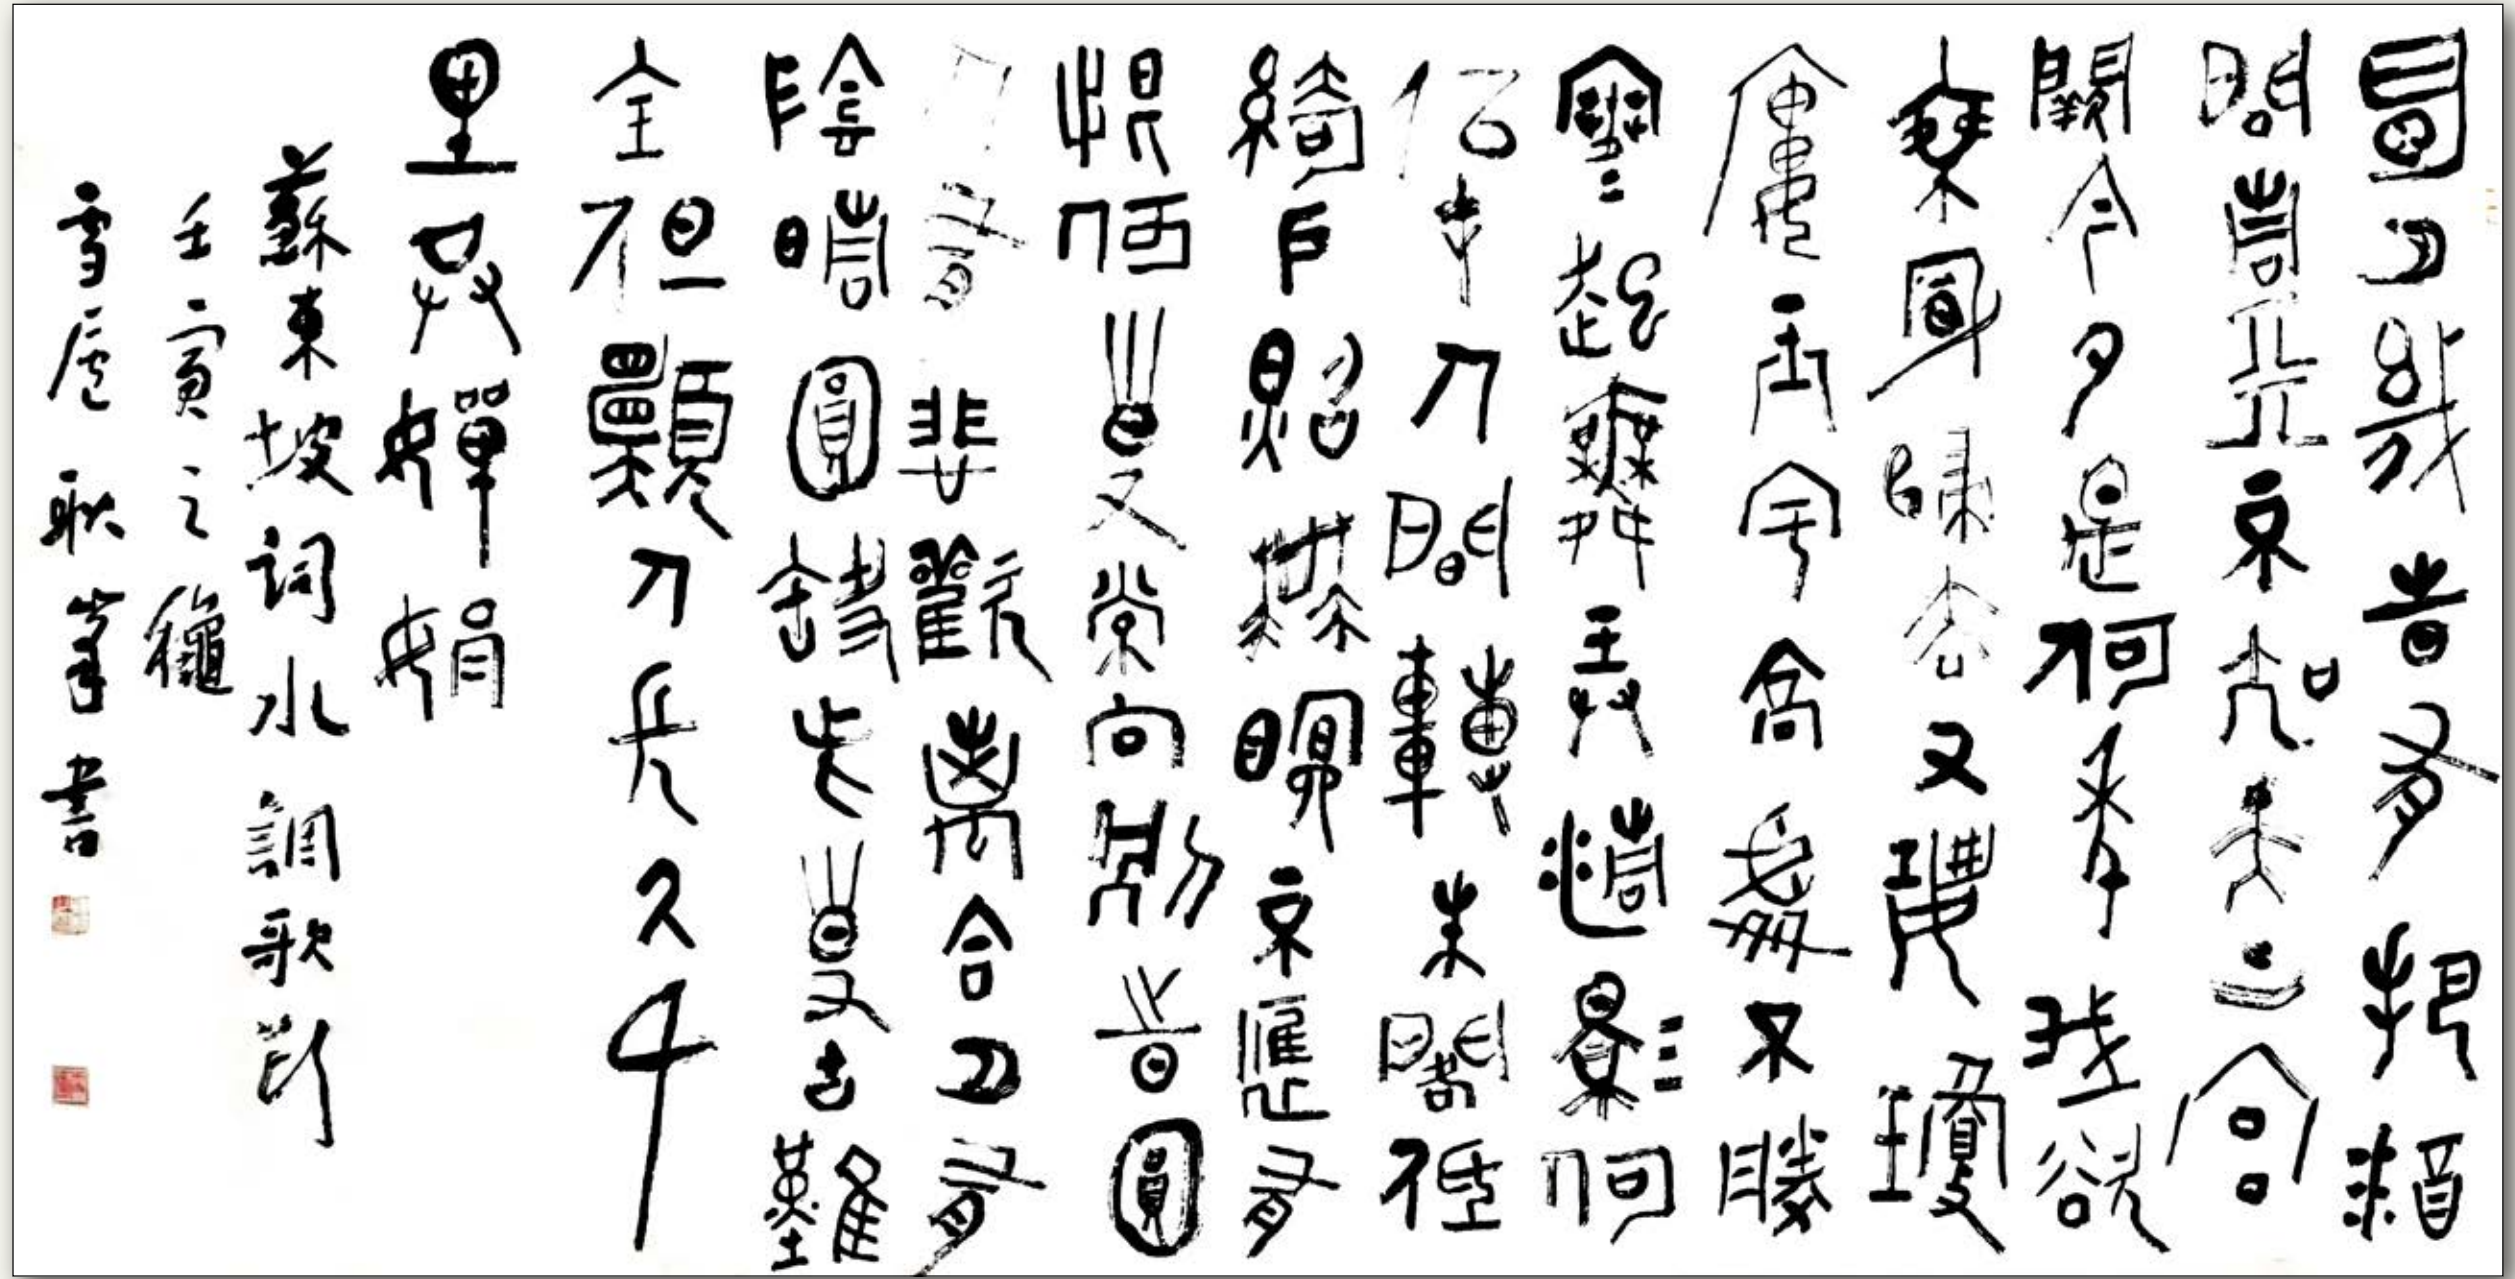 明月幾時有把酒
問青天不知天上宮
闕今夕是何年我欲
乘風歸去又恐瓊
樓玉宇高處不勝
寒起舞弄清影何
似在人間轉朱閣低
綺戶照無眠不應有
恨何事長向別時圓
人有悲歡離合月有
陰晴圓缺此事古難
全但願人長久千
里共嬋娟
蘇東坡詞水調歌
壬寅之龝
雪廬耿峯書